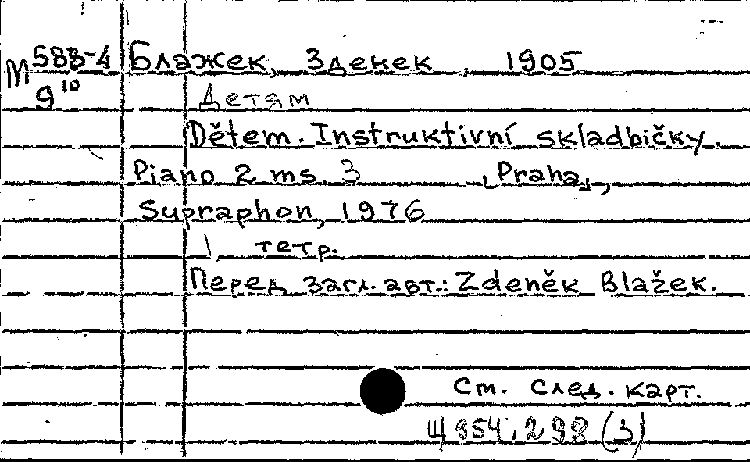 М 583-4 Блажек, Зденек, 1905
9¹⁰ Детям
Dětem. Instruktivní skladbičky.
Piano 2 ms. 3 [Praha],
Supraphon, 1976
1 тетр.
Перед загл. авт.: Zdeněk Blažek.
См. след. карт.
Ш 954.298 (3)